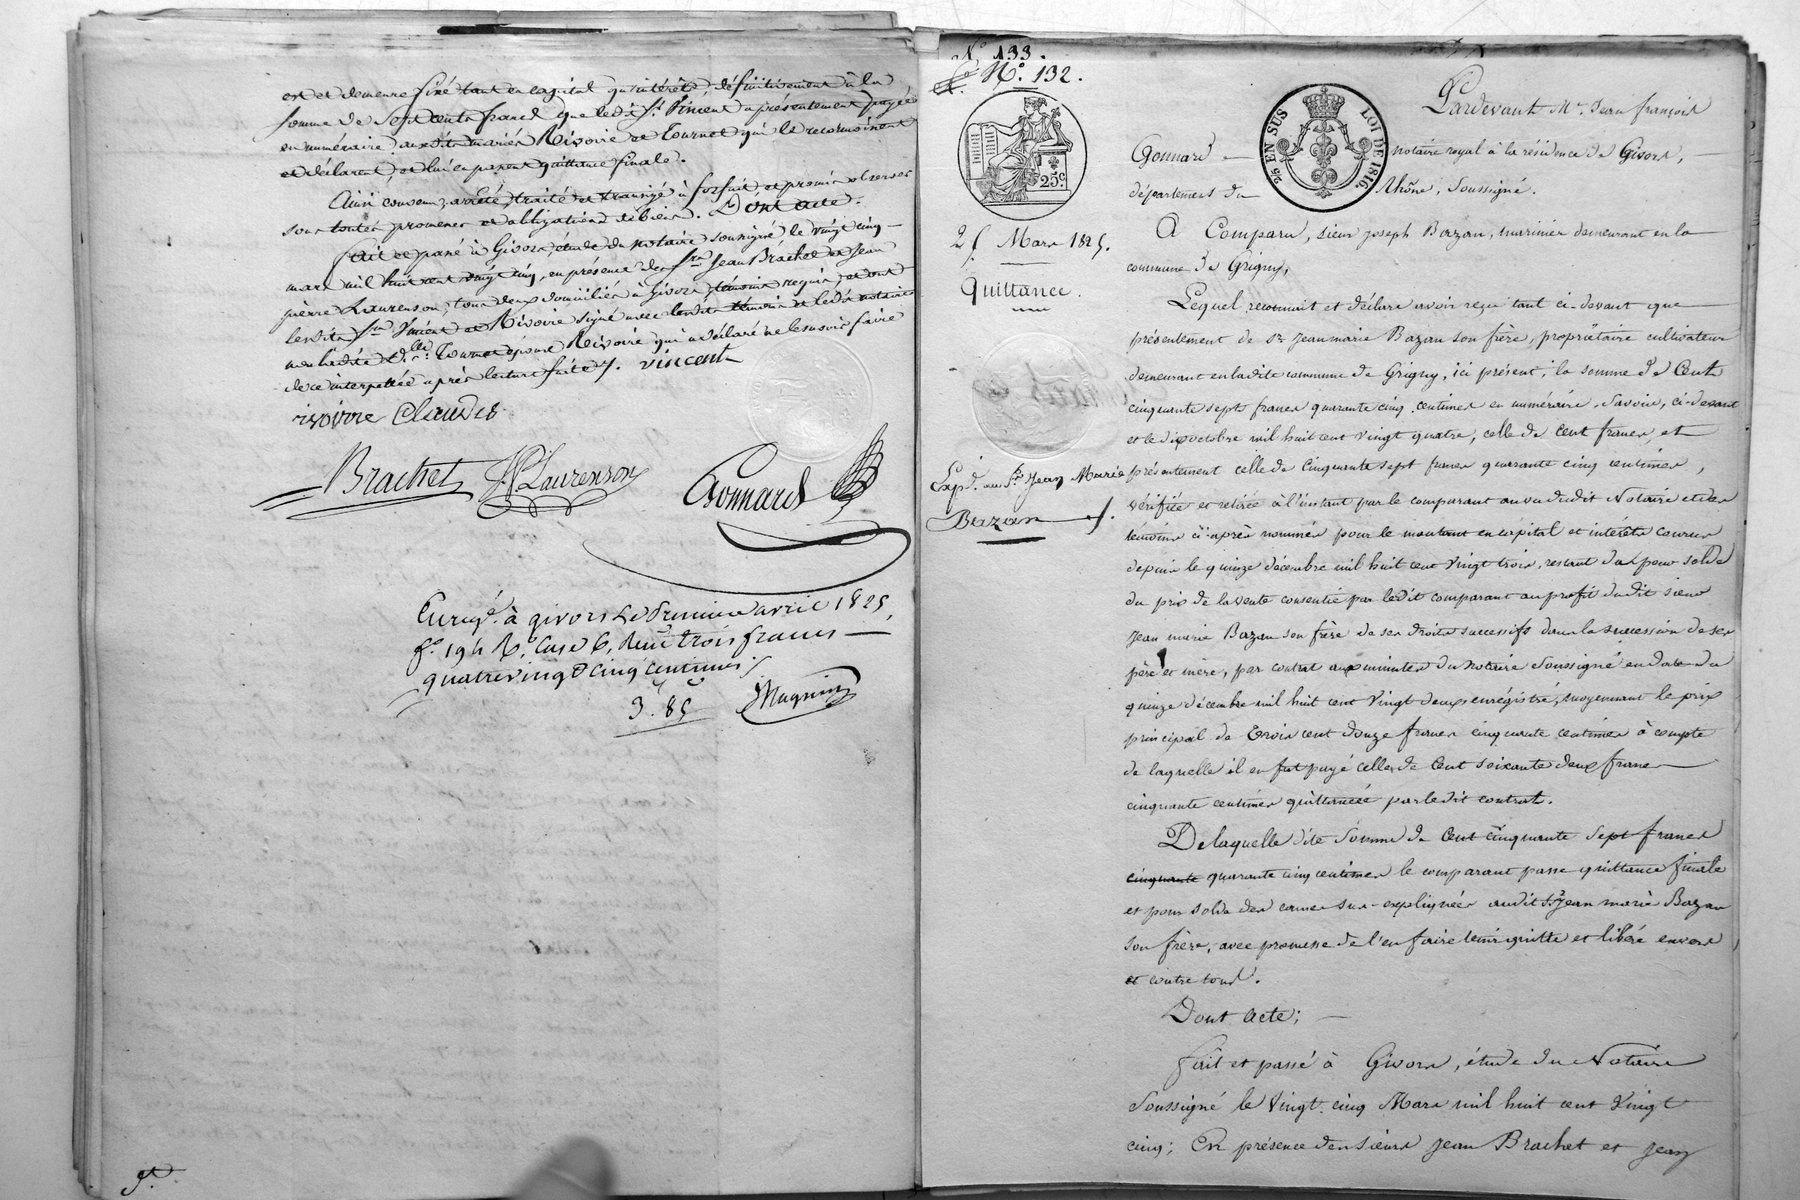 est et demeure fixé tant en capital qu'intérêts, définitivement à la
somme de Sept cents francs que ledit Sr. Vincent a présentement payée
en numéraire auxdits mariés Rivoire et Tournet qui le reconnaissent
et déclarent, et lui en passent quittance finale.
Ainsi convenu, arrêté, traité et transigé à forfait, et promis observer
sous toutes promesses et obligations de biens. Dont acte.
Fait et passé à Givors, étude du notaire soussigné le vingt cinq
mars mil huit cent vingt cinq, en présence des Srs Jean Brachet et Jean
pierre Laurenson, tous deux domiciliés à Givors, témoins requis, et ont
lesdits Srs Vincent et Rivoire signé avec lesdits témoins et ledit notaire
non ladite Tournet épouse Rivoire qui a déclaré ne le savoir faire
de ce interpellée après lecture faite /. vincent
rivoire Claude
Brachet JP Laurenson Gonnard
Enregé. à givors le Premier avril 1825,
fo. 194 Ro. Case 6, Reçu trois francs
quatre vingt cinq centimes /.
3. 85 Magnin
No 133.
No. 132.
25 c.
25 EN SUS LOI DE 1816.
25 Mars 1825.
Quittance.
Expd. au Sr. Jean Marie
Bazan /.
Pardevant Me. Jean françois
Gonnard notaire royal à la résidence de Givors,
département du Rhône, Soussigné.
A Comparu, sieur joseph Bazan, marinier demeurant en la
commune de Grigny,
Lequel reconnait et déclare avoir reçu tant ci-devant que
présentement de Sr. Jean marie Bazan son frère, propriétaire cultivateur
demeurant en ladite commune de Grigny, ici présent, la somme de Cent
cinquante septs francs quarante cinq centimes en numéraire, Savoir, ci-devant
et le dix octobre mil huit cent vingt quatre, celle de cent francs, et
présentement celle de Cinquante sept francs quarante cinq centimes,
vérifiée et retirée à l'instant par le comparant au vu dudit Notaire et des
témoins ci-après nommés pour le montant en capital et intérêts courus
depuis le quinze décembre mil huit cent vingt trois, restant dus pour solde
du prix de la vente consentie par ledit comparant au profit dudit sieur
Jean marie Bazan son frère de ses droits successifs dans la succession de ses
père et mère, par contrat aux minutes du notaire Soussigné en date du
quinze décembre mil huit cent vingt deux enrégistré, moyennant le prix
principal de Trois cent douze francs cinquante centimes à compte
de laquelle il en fut payé celle de Cent soixante deux francs
cinquante centimes quittancée par ledit contrat.
De laquelle dite Somme de Cent cinquante sept francs
cinquante quarante cinq centimes le comparant passe quittance finale
et pour solde des causes sus-expliquées audit Sr. Jean marie Bazan
son frère, avec promesse de l'en faire tenir quitte et libéré envers
et contre tous.
Dont acte;
fait et passé à Givors, étude du Notaire
Soussigné le Vingt cinq Mars mil huit cent Vingt
cinq; En présence des Sieurs Jean Brachet et Jean